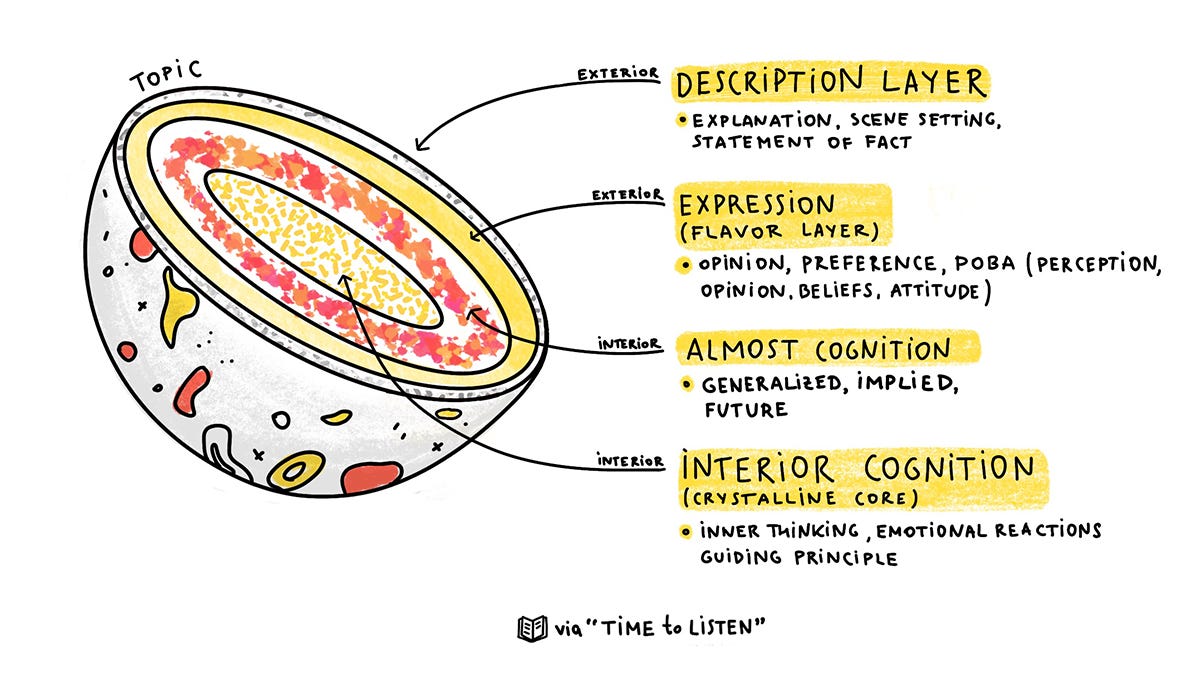 TOPiC
EXTERiOR
DESCRiPTiON LAYER
• EXPLANATION, SCENE SETTiNG,
STATEMENT OF FACT
EXTERiOR
EXPRESSiON
(FLAVOR LAYER)
• OPiNiON, PREFERENCE, POBA (PERCEPTiON,
OPiNiON, BELiEFS, ATTiTUDE)
iNTERiOR
ALMOST COGNiTiON
• GENERALiZED, iMPLiED,
FUTURE
iNTERiOR
iNTERiOR COGNiTiON
(CRYSTALLiNE CORE)
• iNNER THiNKiNG, EMOTiONAL REACTiONS
GUiDiNG PRiNCiPLE
via "TiME to LiSTEN"